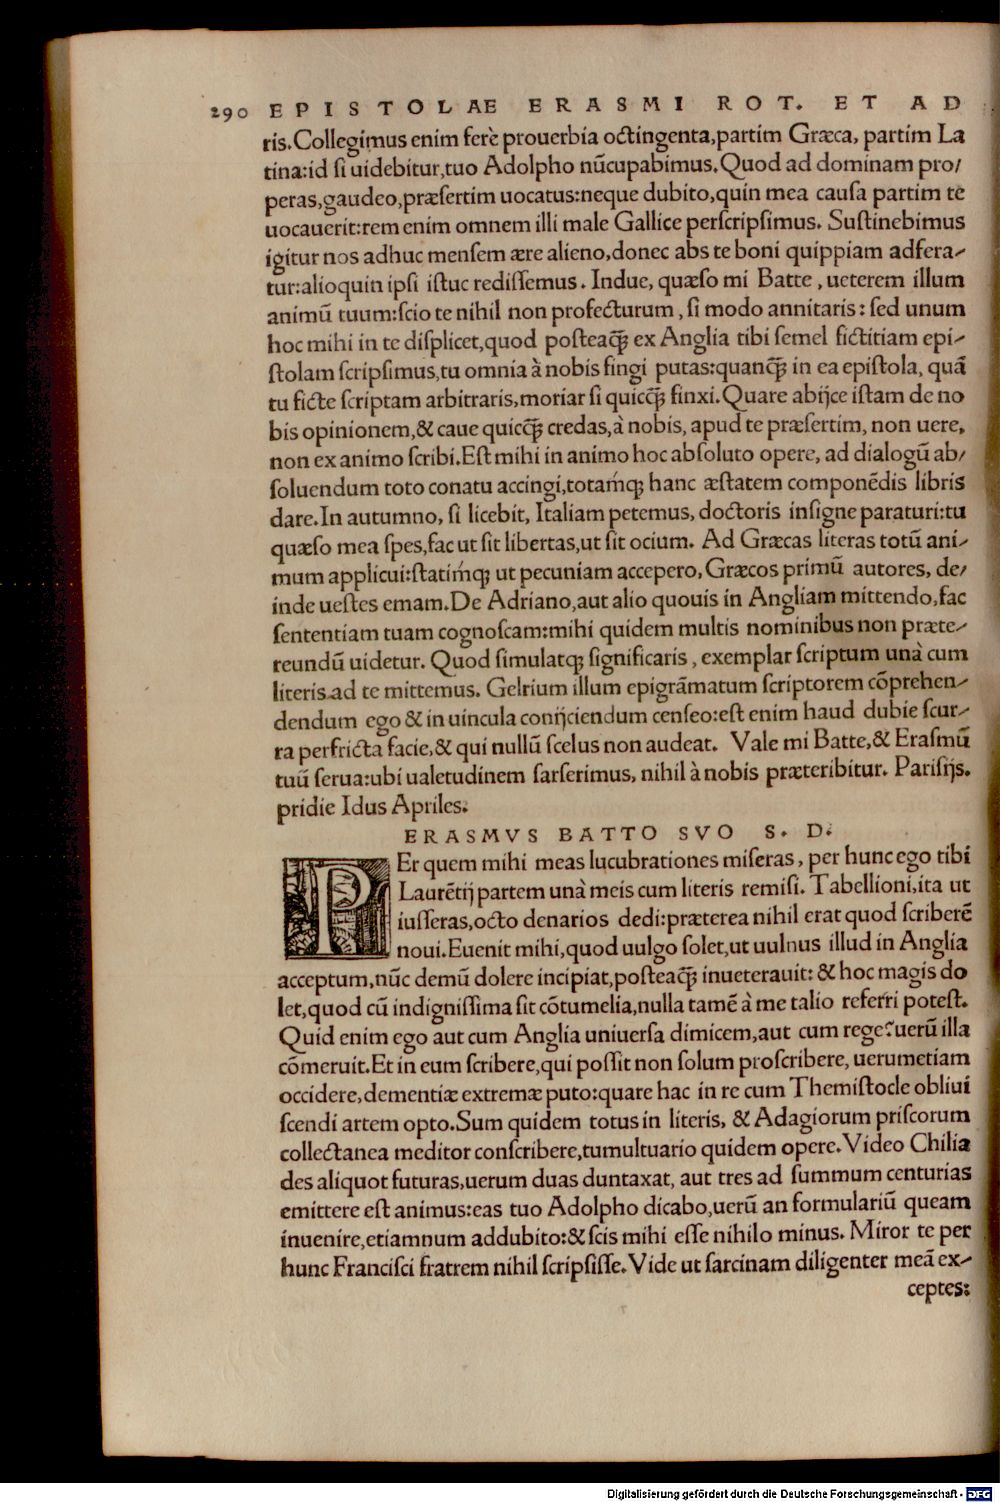 290 EPISTOLAE ERASMI ROT. ET AD
ris. Collegimus enim ferè prouerbia octingenta, partim Græca, partim La
tina: id si uidebitur, tuo Adolpho nũcupabimus. Quod ad dominam pro/
peras, gaudeo, præsertim uocatus: neque dubito, quin mea causa partim te
uocauerit: rem enim omnem illi male Gallice perscripsimus. Sustinebimus
igitur nos adhuc mensem ære alieno, donec abs te boni quippiam adfera-
tur: alioquin ipsi istuc redissemus. Indue, quæso mi Batte, ueterem illum
animũ tuum: scio te nihil non profecturum, si modo annitaris: sed unum
hoc mihi in te displicet, quod posteaꝗ̃ ex Anglia tibi semel fictitiam epi-
stolam scripsimus, tu omnia à nobis fingi putas: quanꝗ̃ in ea epistola, quã
tu ficte scriptam arbitraris, moriar si quicꝗ̃ finxi. Quare abijce istam de no
bis opinionem, & caue quicꝗ̃ credas, à nobis, apud te præsertim, non uere,
non ex animo scribi. Est mihi in animo hoc absoluto opere, ad dialogũ ab/
soluendum toto conatu accingi, totamꝗ́; hanc æstatem componẽdis libris
dare. In autumno, si licebit, Italiam petemus, doctoris insigne paraturi: tu
quæso mea spes, fac ut sit libertas, ut sit ocium. Ad Græcas literas totũ ani-
mum applicui: statimꝗ́; ut pecuniam accepero, Græcos primũ autores, de/
inde uestes emam. De Adriano, aut alio quouis in Angliam mittendo, fac
sententiam tuam cognoscam: mihi quidem multis nominibus non præte-
reundũ uidetur. Quod simulatꝗ; significaris, exemplar scriptum unà cum
literis ad te mittemus. Gelrium illum epigrãmatum scriptorem cõprehen-
dendum ego & in uincula conijciendum censeo: est enim haud dubie scur-
ra perfricta facie, & qui nullũ scelus non audeat. Vale mi Batte, & Erasmũ
tuũ serua: ubi ualetudinem sarserimus, nihil à nobis præteribitur. Parisijs.
pridie Idus Apriles.
ERASMVS BATTO SVO S. D.
PEr quem mihi meas lucubrationes miseras, per hunc ego tibi
Laurẽtij partem unà meis cum literis remisi. Tabellioni, ita ut
iusseras, octo denarios dedi: præterea nihil erat quod scriberẽ
noui. Euenit mihi, quod uulgo solet, ut uulnus illud in Anglia
acceptum, nũc demũ dolere incipiat, posteaꝗ̃ inueterauit: & hoc magis do
let, quod cũ indignissima sit cõtumelia, nulla tamẽ à me talio referri potest.
Quid enim ego aut cum Anglia uniuersa dimicem, aut cum rege? uerũ illa
cõmeruit. Et in eum scribere, qui possit non solum proscribere, uerumetiam
occidere, dementiæ extremæ puto: quare hac in re cum Themistocle obliui
scendi artem opto. Sum quidem totus in literis, & Adagiorum priscorum
collectanea meditor conscribere, tumultuario quidem opere. Video Chilia
des aliquot futuras, uerum duas duntaxat, aut tres ad summum centurias
emittere est animus: eas tuo Adolpho dicabo, uerũ an formulariũ queam
inuenire, etiamnum addubito: & scis mihi esse nihilo minus. Miror te per
hunc Francisci fratrem nihil scripsisse. Vide ut sarcinam diligenter meã ex-
ceptes:
Digitalisierung gefördert durch die Deutsche Forschungsgemeinschaft - DFG